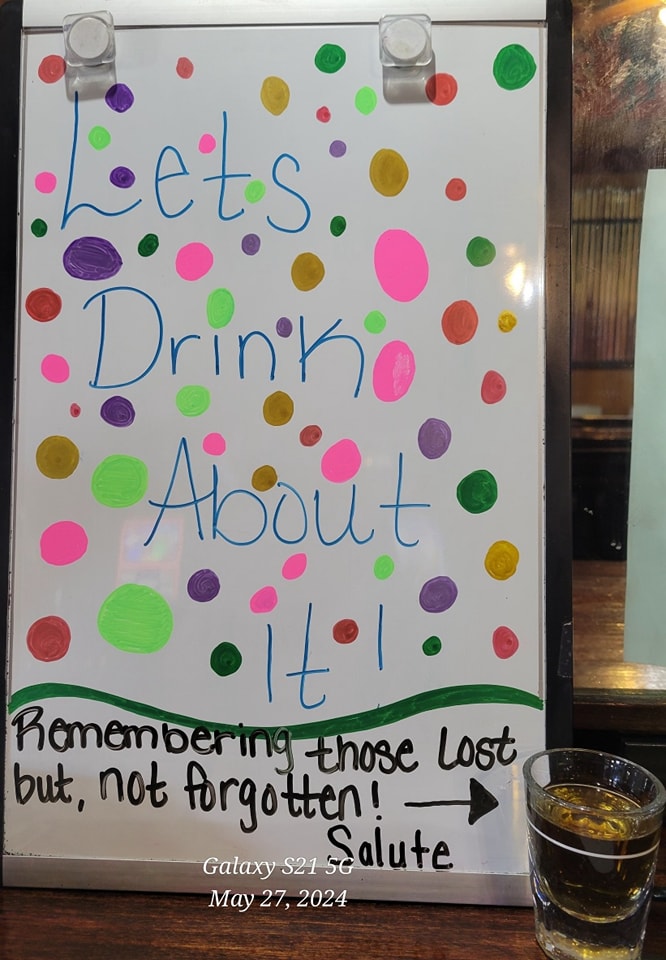 Lets
Drink
About
It!
Remembering those Lost
but, not forgotten!
Salute
Galaxy S21 5G
May 27, 2024